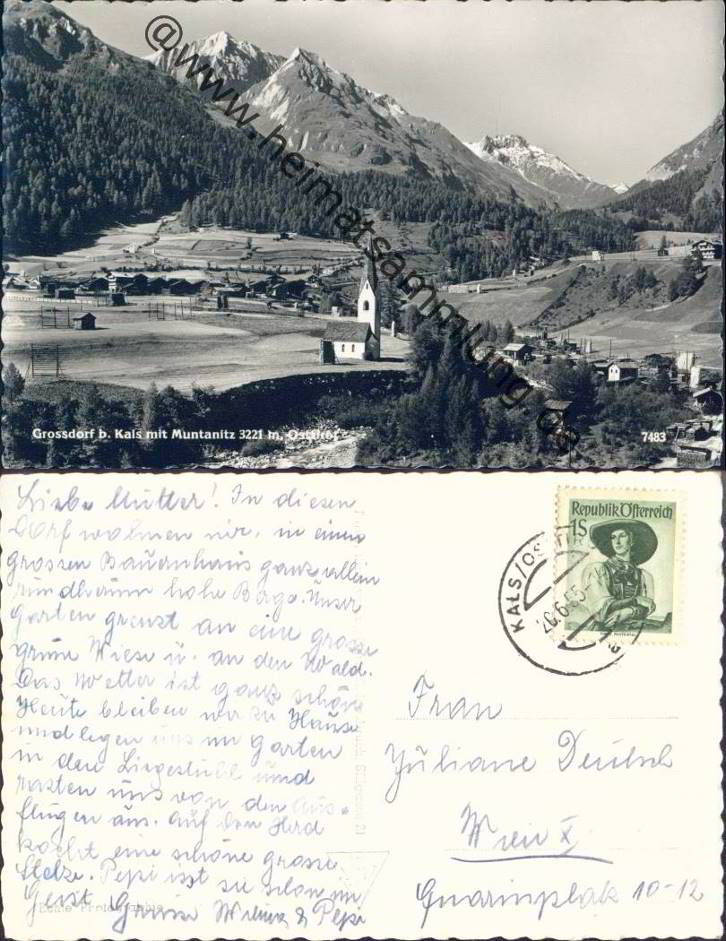 @www.heimatsammlung.de
Grossdorf b. Kals mit Muntanitz 3221 m, Osttirol
7483
Liebe Mutter! In diesen
Dorf wohnen wir, in einen
grossen Bauernhaus ganz allein
rundherum hohe Berge. Unser
Garten grenzt an eine grosse
grüne Wiese u. an den Wald.
Das Wetter ist ganz schön
Heute bleiben wir zu Hause
und legen uns im Garten
in den Liegestuhl und
rasten uns von den Aus-
flügen aus. Auf den Herd
kocht eine schöne grosse
Stelze. Pepi isst sie schon im
Geist Grüsse Wilma & Pepi
Echte Photographie
Republik Österreich
1S
KALS/OSTTIROL
20.6.55
a
Frau
Juliane Deutsch
Wien X
Quarinplatz 10-12